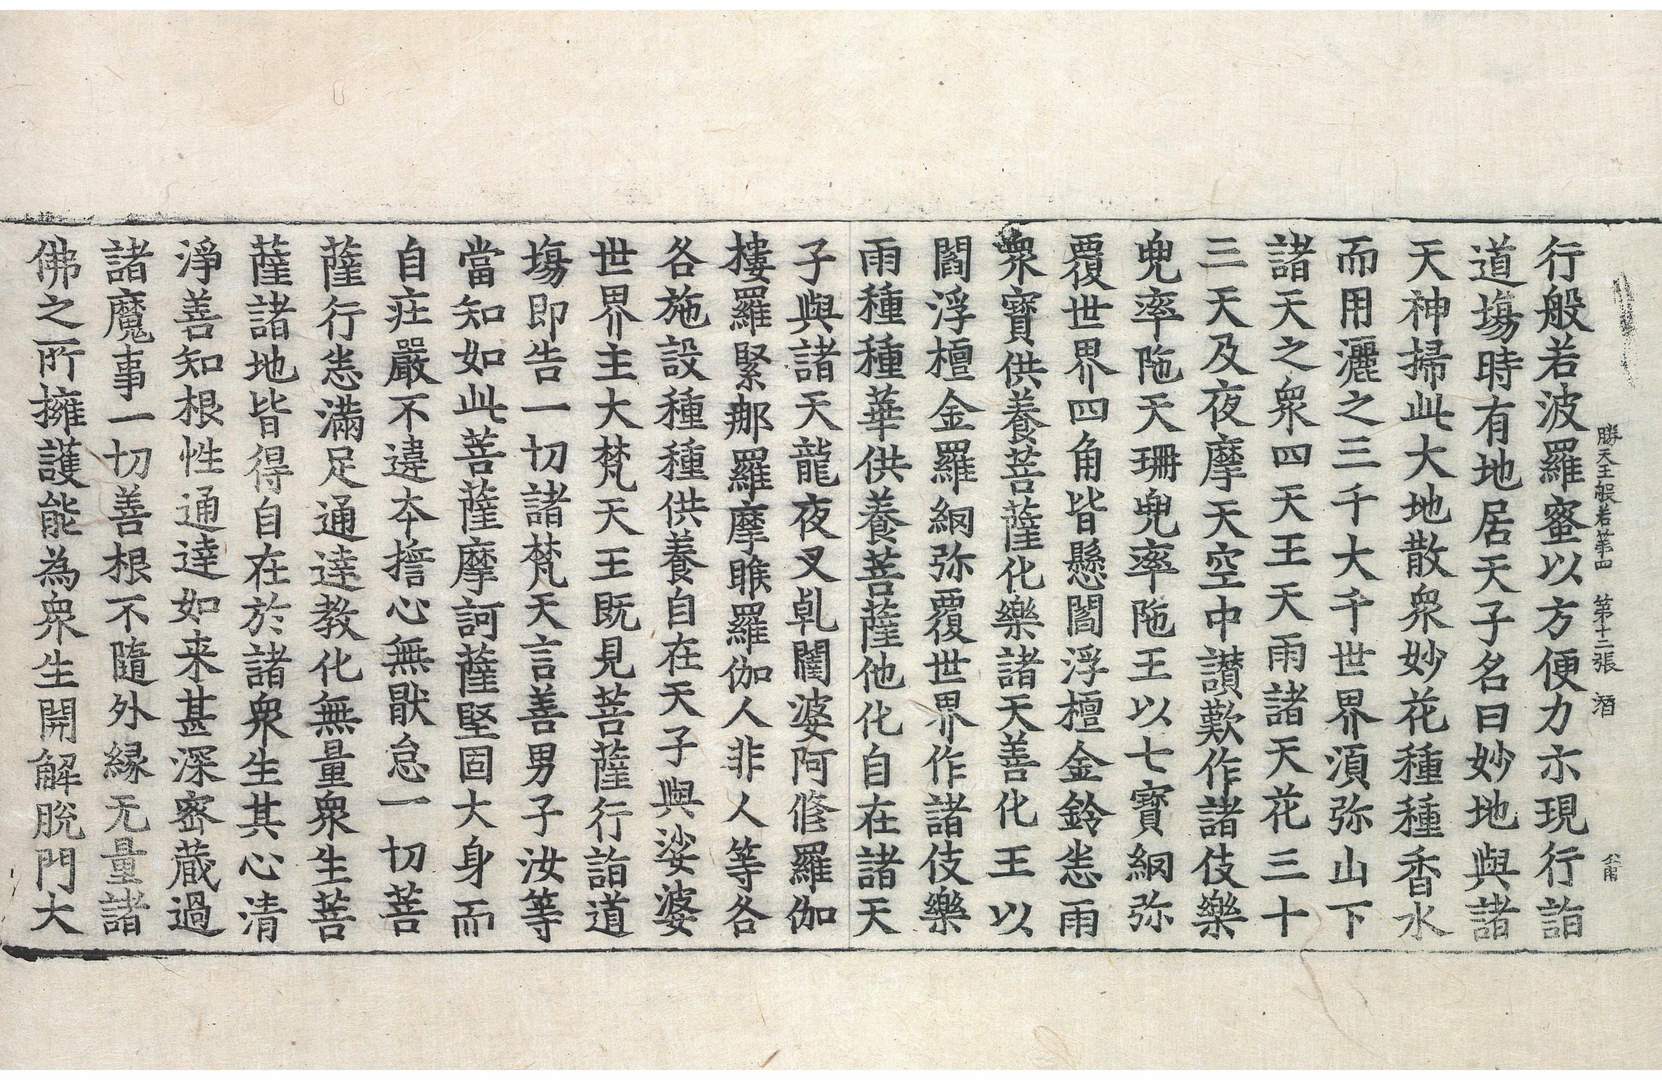 勝天王般若第四　第十二張　酒
行般若波羅蜜以方便力示現行詣
道塲時有地居天子名曰妙地與諸
天神掃此大地散衆妙花種種香水
而用灑之三千大千世界湏弥山下
諸天之衆四天王天雨諸天花三十
三天及夜摩天空中讃歎作諸伎樂
兜率陁天珊兜率陁王以七寶網弥
覆世界四角皆懸閻浮檀金鈴悉雨
衆寶供養菩薩化樂諸天善化王以
閻浮檀金羅網弥覆世界作諸伎樂
雨種種華供養菩薩他化自在諸天
子與諸天龍夜叉乹闥婆阿修羅伽
樓羅緊那羅摩睺羅伽人非人等各
各施設種種供養自在天子與娑婆
世界主大梵天王既見菩薩行詣道
塲即告一切諸梵天言善男子汝等
當知如此菩薩摩訶薩堅固大身而
自荘嚴不違夲擔心無猒怠一切菩
薩行悉滿足通達教化無量衆生菩
薩諸地皆得自在於諸衆生其心清
淨善知根性通達如来甚深密蔵過
諸魔事一切善根不隨外縁无量諸
佛之所擁護能為衆生開解脫門大